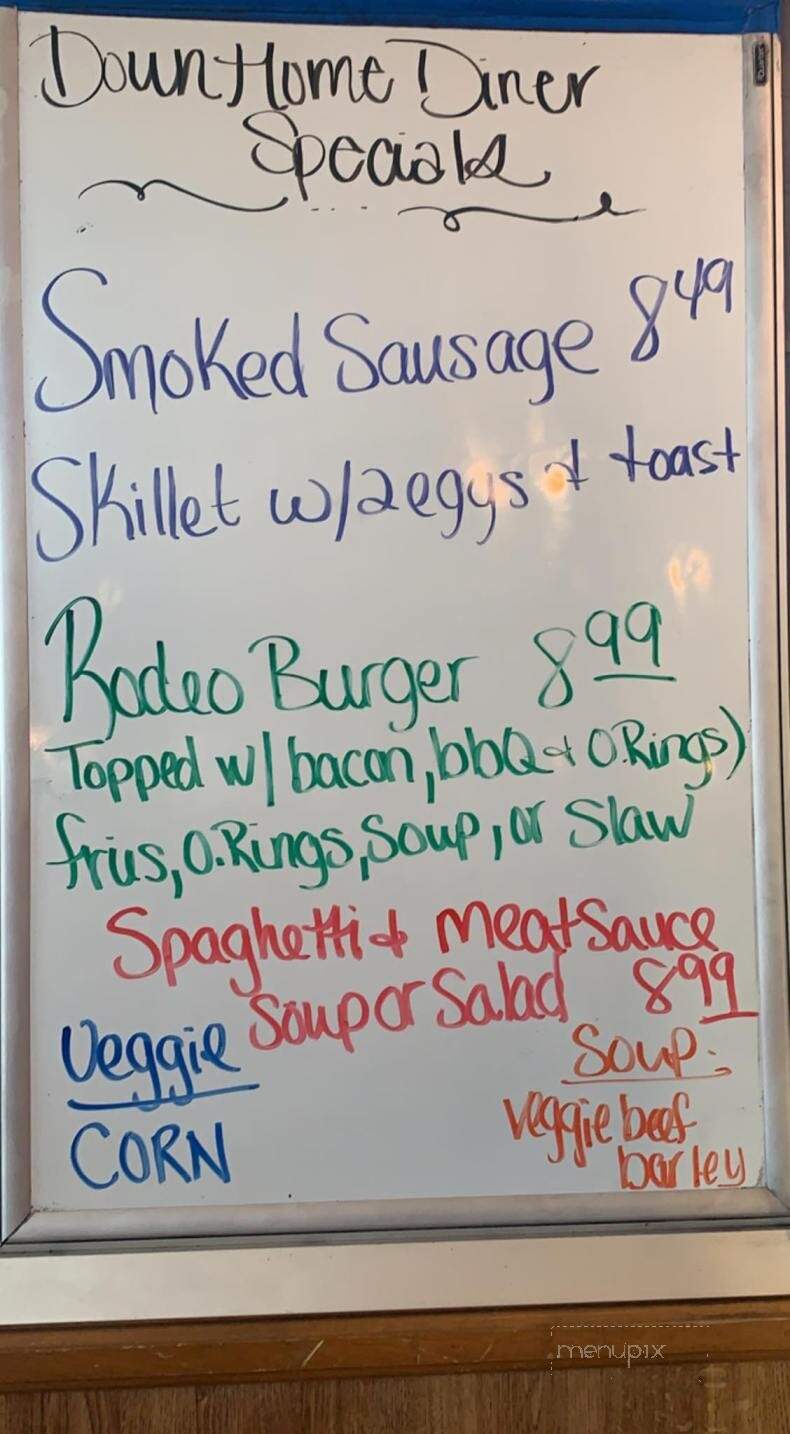 Down Home Diner
Specials
Smoked Sausage 8 49
Skillet w/2 eggs & toast
Rodeo Burger 8 99
Topped w/ bacon, bbQ & O.Rings)
fries, O.Rings, Soup, or Slaw
Spaghetti & meat Sauce
Soup or Salad 8 99
Veggie
CORN
Soup:
Veggie beef
barley
menupix